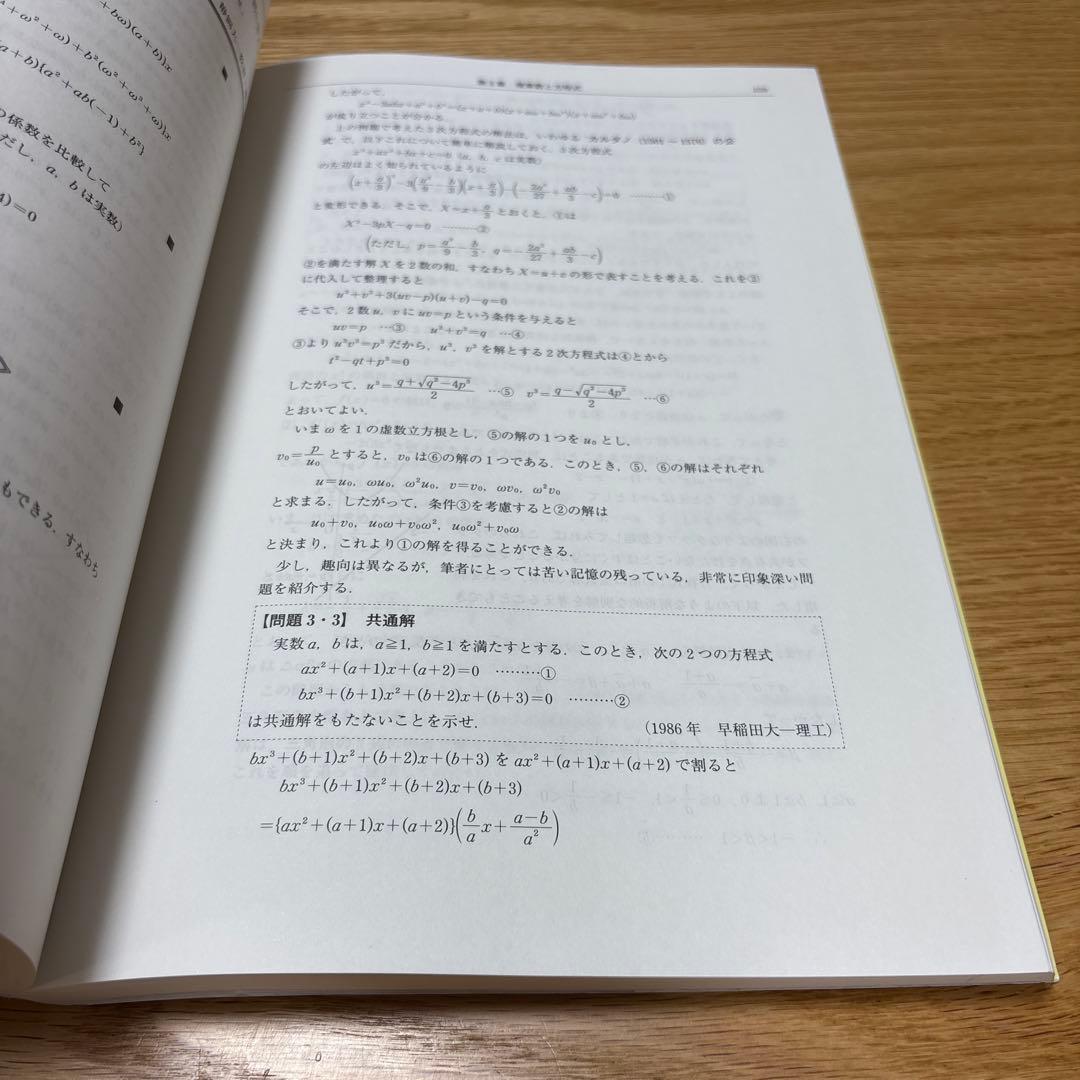 +bω)(a+b)}x
+ω²+ω)+b²(ω²+ω²+ω)}x
+b){a²+ab(-1)+b²}
の係数を比較して
だし，a，bは実数)
4)=0
もできる．すなわち
したがって，
が成り立つことが分かる．
上の問題で考えた3次方程式の解法は，いわゆる カルダノ の公
式 で，以下これについて簡単に解説しておく．3次方程式
x³+ax²+bx+c=0 (a，b，cは実数)
の左辺はよく知られているように
(x+a/3)³-3(a²/9-b/3)(x+a/3)-(-2a³/27+ab/3-c)=0 ………①
と変形できる．そこで，X=x+a/3とおくと，①は
X³-3pX-q=0 ………②
(ただし，p=a²/9-b/3，q=-2a³/27+ab/3-c)
②を満たす解Xを2数の和，すなわちX=u+vの形で表すことを考える．これを②
に代入して整理すると
u³+v³+3(uv-p)(u+v)-q=0
そこで，2数u，vにuv=pという条件を与えると
uv=p …③ u³+v³=q …④
③よりu³v³=p³だから，u³，v³を解とする2次方程式は④とから
t²-qt+p³=0
したがって，u³=(q+√(q²-4p³))/2 …⑤ v³=(q-√(q²-4p³))/2 …⑥
とおいてよい．
いまωを1の虚数立方根とし，⑤の解の1つをu₀とし，
v₀=p/u₀とすると，v₀は⑥の解の1つである．このとき，⑤，⑥の解はそれぞれ
u=u₀，ωu₀，ω²u₀，v=v₀，ωv₀，ω²v₀
と求まる．したがって，条件③を考慮すると②の解は
u₀+v₀，u₀ω+v₀ω²，u₀ω²+v₀ω
と決まり，これより①の解を得ることができる．
少し，趣向は異なるが，筆者にとっては苦い記憶の残っている，非常に印象深い問
題を紹介する．
【問題3・3】 共通解
実数a，bは，a≧1，b≧1を満たすとする．このとき，次の2つの方程式
ax²+(a+1)x+(a+2)=0 ………①
bx³+(b+1)x²+(b+2)x+(b+3)=0 ………②
は共通解をもたないことを示せ．
(1986年 早稲田大—理工)
bx³+(b+1)x²+(b+2)x+(b+3)をax²+(a+1)x+(a+2)で割ると
bx³+(b+1)x²+(b+2)x+(b+3)
={ax²+(a+1)x+(a+2)}(b/a x+(a-b)/a²)